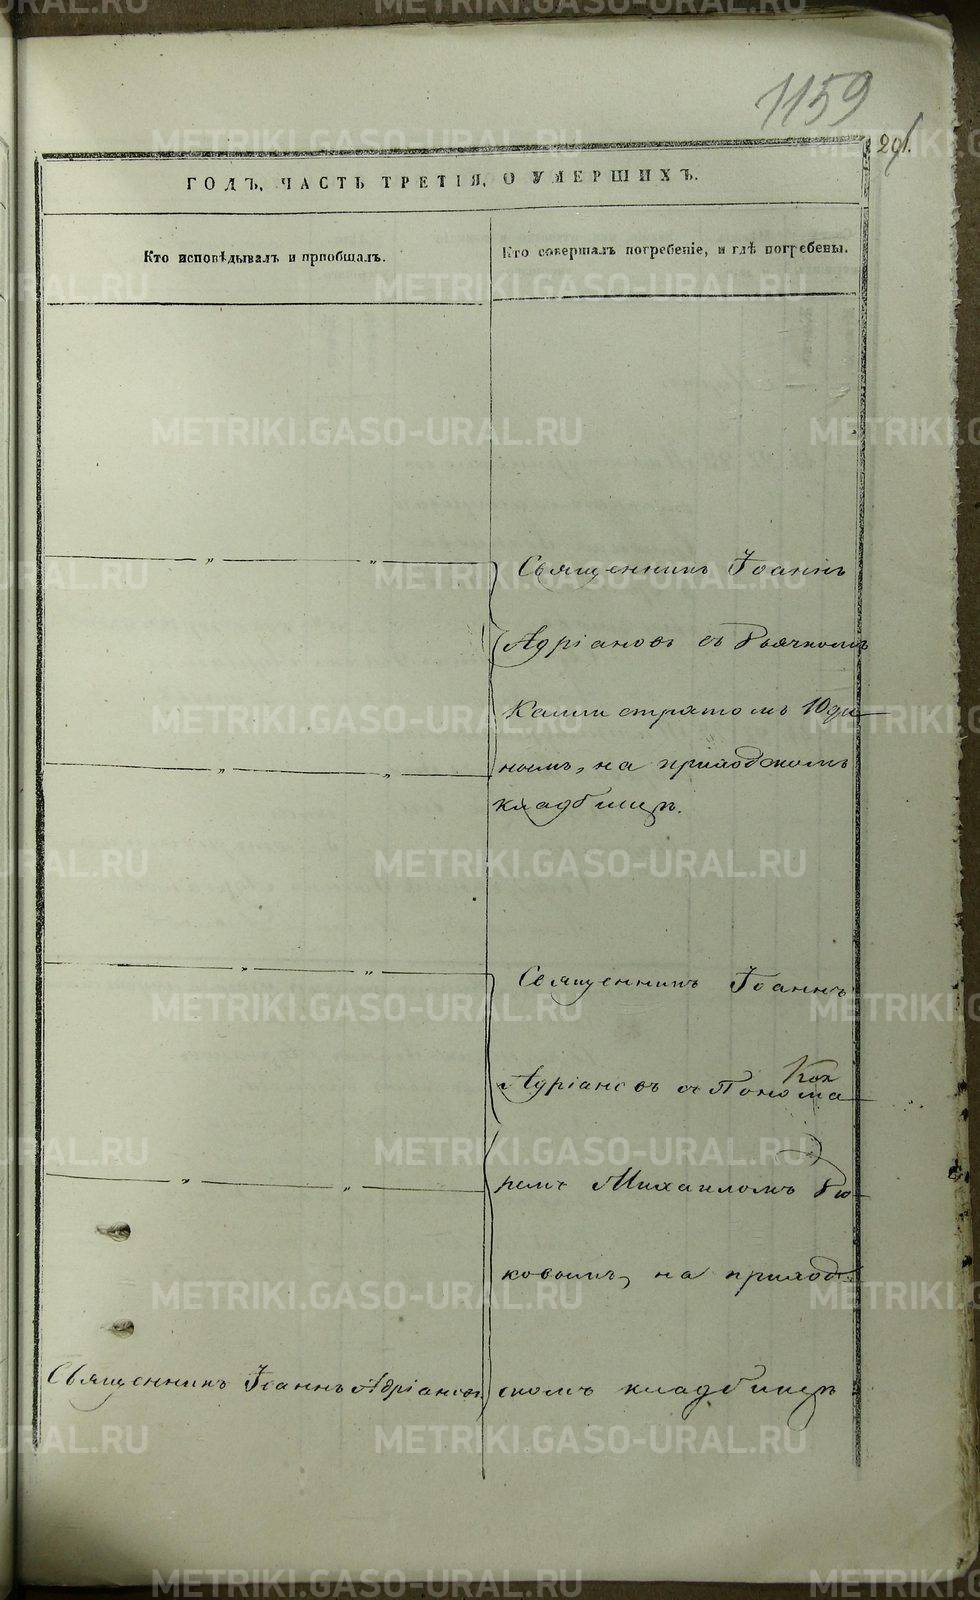 1159
291.
ГОДЪ, ЧАСТЬ ТРЕТІЯ, О УМЕРШИХЪ.
Кто исповѣдывалъ и пріобщалъ.
Кто совершалъ погребеніе, и гдѣ погребены.
Священникъ Іоаннъ
Адріановъ съ Дьячкомъ
Каллистратомъ Юди
нымъ, на приходскомъ
кладбищѣ.
Священникъ Іоаннъ
Адріановъ съ Понома
ремъ Михаиломъ
ковымъ, на приход
Священникъ Іоаннъ Адріановъ
скомъ кладбищѣ
METRIKI.GASO-URAL.RU